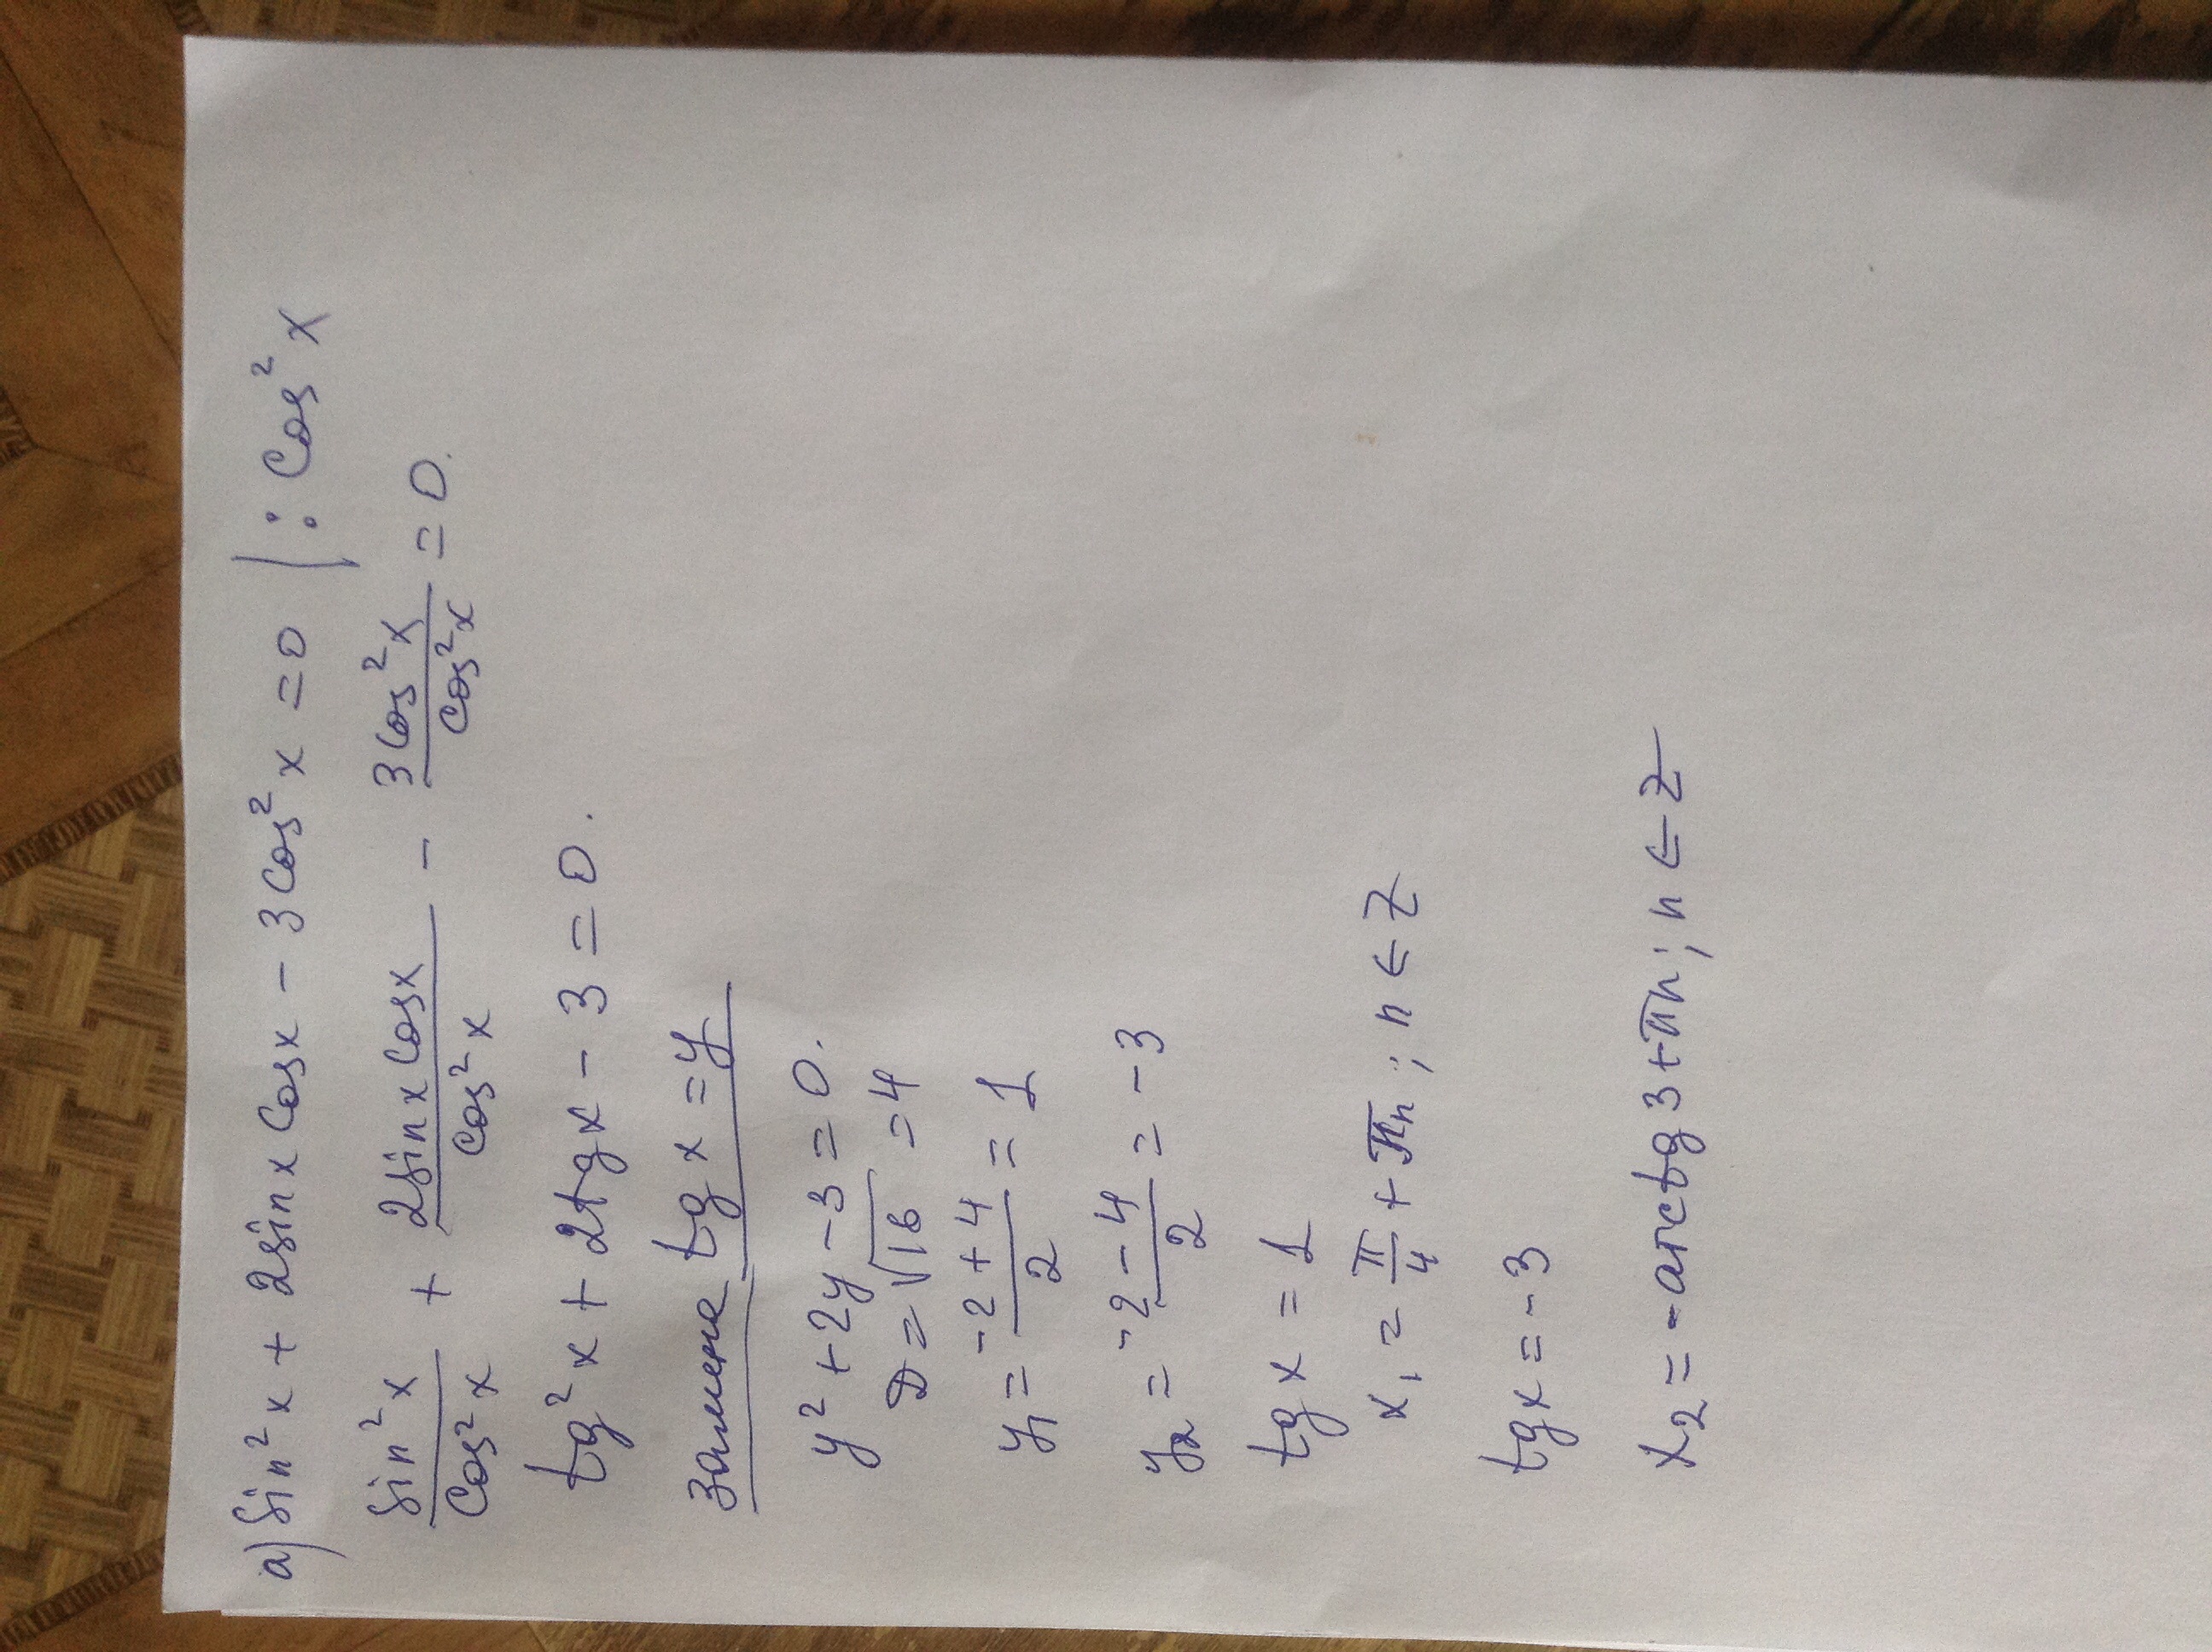 а) sin²x + 2sinx cosx - 3cos²x = 0 | : cos²x
sin²x/cos²x + 2sinx cosx/cos²x - 3cos²x/cos²x = 0.
tg²x + 2tgx - 3 = 0.
замена tgx = y
y² + 2y - 3 = 0.
D = √16 = 4
y₁ = -2 + 4/2 = 1
y₂ = -2 - 4/2 = -3
tgx = 1
x₁ = π/4 + πn; n ∈ Z
tgx = -3
x₂ = -arctg3 + πn; n ∈ Z